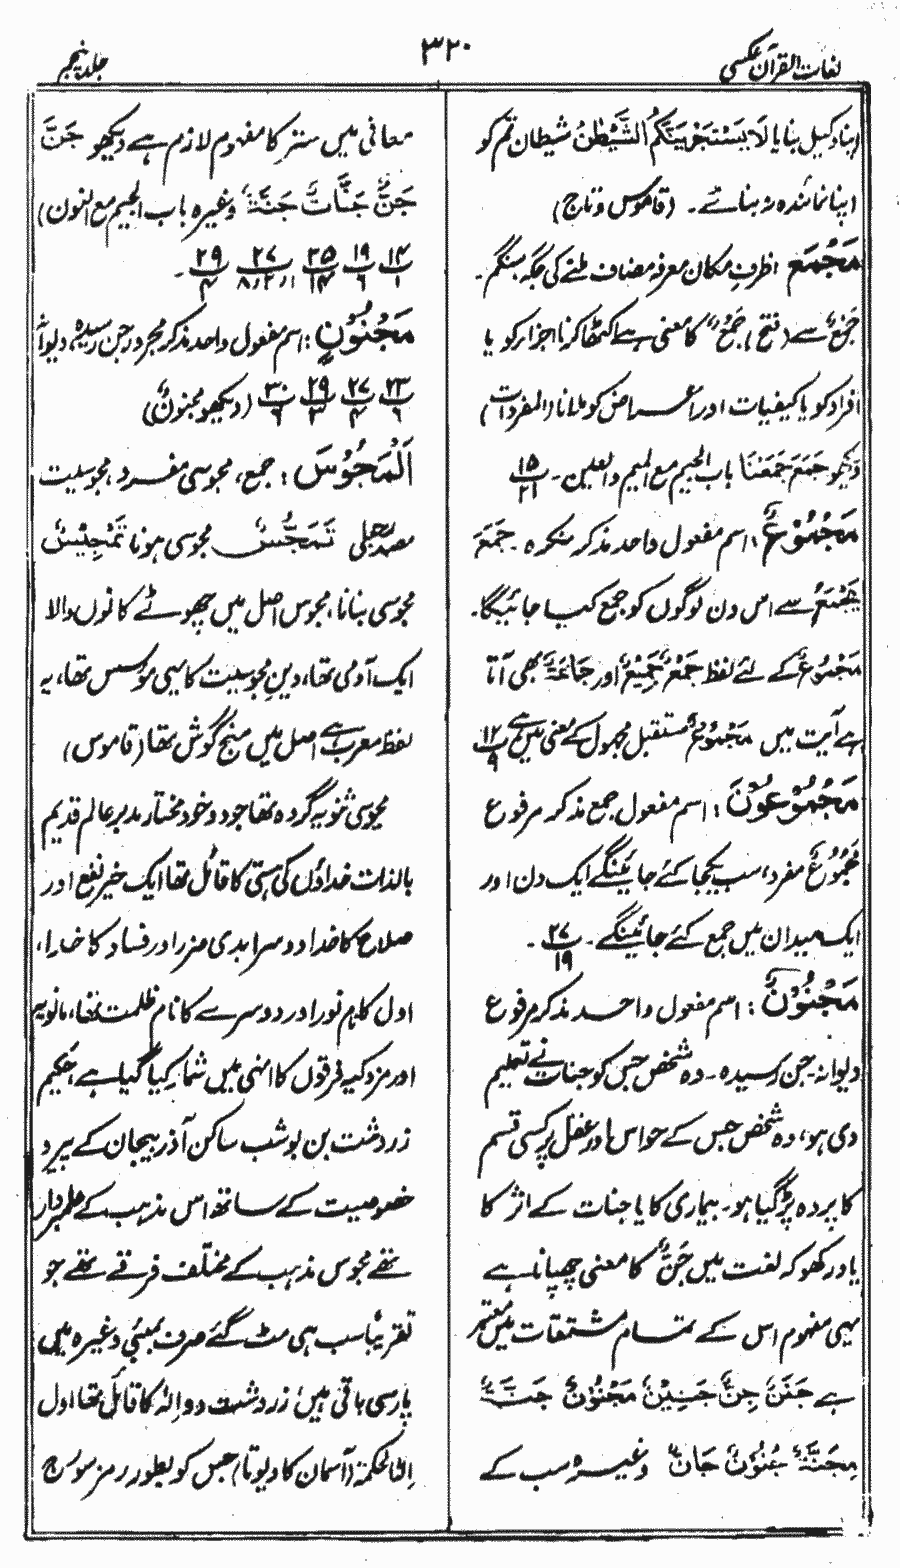 لغات القرآن عکسی
۳۲۰
جلد پنجم
اپنا وکیل بنایا لَا یَسْتَجْرِیَنَّکُمُ الشَّیْطٰنُ شیطان تم کو
اپنا نمائندہ نہ بنائے۔ (قاموس و تاج)
مَجْمَعَ اظرف مکان معرفہ مضاف ملنے کی جگہ سنگم۔
جَمْعٌ سے (فتح) جَمْعٌ کا معنی ہے اکٹھا کرنا اجزاء کو یا
افراد کو یا کیفیات اور اعراض کو ملانا (المفردات)
دیکھو جَمَعَ جَمَعْنَا باب الجیم مع المیم والعین۔ ۱۵/۲۱
مَجْمُوْعٌ: اسم مفعول واحد مذکر منکرہ۔ جَمَعَ
یَجْمَعُ سے اس دن لوگوں کو جمع کیا جائیگا۔
مَجْمُوْعٌ کے لئے لفظ جَمْعٌ جَمِیْعٌ اور جَمَاعَۃٌ بھی آتا
ہے آیت میں مَجْمُوْعٌ مستقبل مجہول کے معنی میں ہے ۱۲/۹
مَجْمُوْعُوْنَ: اسم مفعول جمع مذکر مرفوع
مَجْمُوْعٌ مفرد، سب یکجا کئے جائینگے ایک دن اور
ایک میدان میں جمع کئے جائینگے۔ ۲۷/۱۹۔
مَجْنُوْنٌ: اسم مفعول واحد مذکر مرفوع
دیوانہ۔ جن رسیدہ۔ وہ شخص جس کو جنات نے تعلیم
دی ہو، وہ شخص جس کے حواس اور عقل پر کسی قسم
کا پردہ پڑ گیا ہو۔ بیماری کا یا جنات کے اثر کا
یاد رکھو کہ لغت میں جَنٌّ کا معنی چھپانا ہے
یہی مفہوم اس کے تمام مشتقات میں معتبر
ہے جَنَنٌ جِنٌّ جَنِیْنٌ مَجْنُوْنٌ جَنَّۃٌ
مِجَنَّۃٌ جُنُوْنٌ جَانٌّ وغیرہ سب کے
معانی میں ستر کا مفہوم لازم ہے دیکھو جَنَّ
جَنٌّ جَنَّاتٌ جَنَّۃٌ وغیرہ باب الجیم مع النون)
۱۴/۱ ۱۹/۶ ۲۵/۱۴ ۲۷/۱،۲،۸ ۲۹/۴۔
مَجْنُوْنٍ: اسم مفعول واحد مذکر مجرور جن رسیدہ، دیوانہ
۲۳/۶ ۲۷/۴ ۲۹/۳ ۳۰/۶ (دیکھو مجنونٌ)
اَلْمَجُوْسَ: جمع، مجوسی مفرد، مجوسیت
مصدر جعلی تَمَجُّسٌ مجوسی ہونا تَمْجِیْسٌ
مجوسی بنانا، مجوس اصل میں چھوٹے کانوں والا
ایک آدمی تھا، دین مجوسیت کا یہی مؤسس تھا، یہ
لفظ معرب ہے اصل میں منج گوش تھا (قاموس)
مجوسی ثنویہ گروہ تھا جو دو خود مختار مدبر عالم قدیم
بالذات خداؤں کی ہستی کا قائل تھا ایک خیر نفع اور
صلاح کا خدا دوسرا بدی ضرر اور فساد کا خدا،
اول کا نام نور اور دوسرے کا نام ظلمت تھا، مانویہ
اور مزدکیہ فرقوں کا انہی میں شمار کیا گیا ہے، حکیم
زردشت بن بوشب ساکن آذربیجان کے پیرو
خصوصیت کے ساتھ اس مذہب کے علمبردار
تھے مجوس مذہب کے مختلف فرقے تھے جو
تقریباً سب ہی مٹ گئے صرف بمبئی وغیرہ میں
پارسی باقی ہیں، زردشت دو الٰہ کا قائل تھا اول
الٰہ الحکمۃ (آسمان کا دیوتا) جس کو بطور رمز سورج